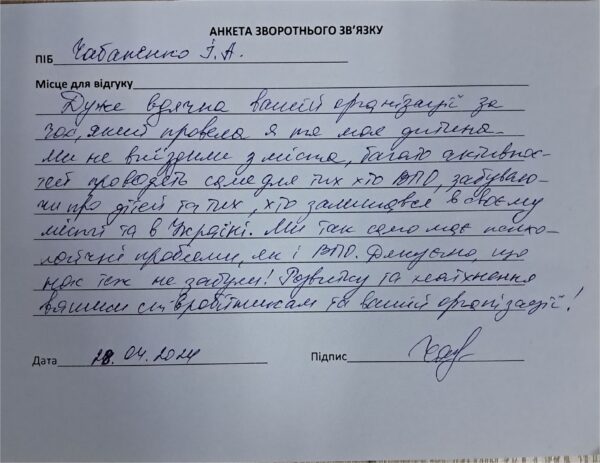 АНКЕТА ЗВОРОТНЬОГО ЗВ’ЯЗКУ
ПІБ Чабаненко І.А.
Місце для відгуку
Дуже вдячна вашій організації за
час, який провела я та моя дитина.
Ми не виїздили з міста, багато активнос-
тей проводять саме для тих хто ВПО, забуваю-
чи про дітей та тих, хто залишався в своєму
місті та в Україні. Ми так само має психо-
логічні проблеми, як і ВПО. Дякуємо, що
нас теж не забули! Розвитку та натхнення
вашим співробітникам та вашій організації!
Дата 28.04.2024 Підпис